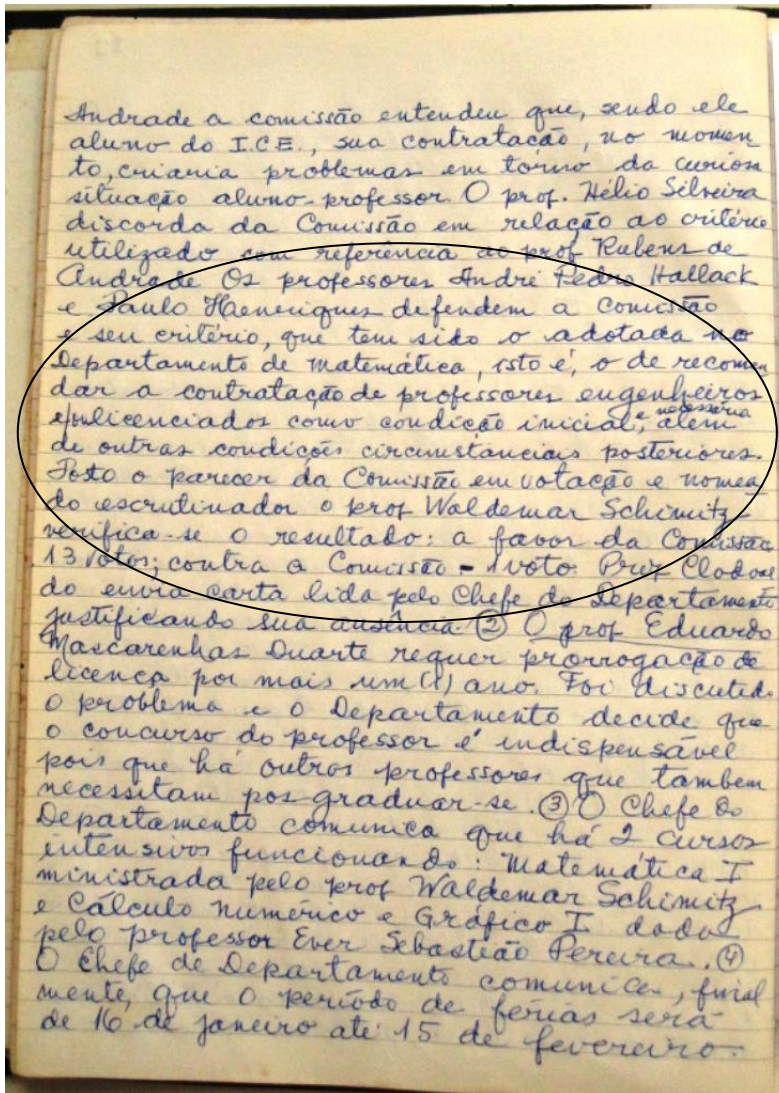 Andrade a comissão entendeu que, sendo ele
aluno do I.C.E., sua contratação, no momen
to, criaria problemas em torno da curiosa
situação aluno-professor. O prof. Hélio Silveira
discorda da Comissão em relação ao critério
utilizado com referência ao prof Rubens de
Andrade Os professores André Pedro Hallack
e Paulo Haenriques defendem a Comissão
e seu critério, que tem sido o adotada no
Departamento de matemática, isto é, o de recomen
dar a contratação de professores engenheiros
e/ou licenciados como condição inicial, e necessária além
de outras condições circunstanciais posteriores.
Posto o parecer da Comissão em votação e nomea
do escrutinador o prof Waldemar Schimitz
verifica-se o resultado: a favor da Comissão
13 votos; contra a Comissão - 1 voto. Prof Clodoal
do envia carta lida pelo Chefe do Departamento
justificando sua ausência. ② O prof Eduardo
Mascarenhas Duarte requer prorrogação de
licença por mais um (1) ano. Foi discutido
o problema e o Departamento decide que
o concurso do professor é indispensável
pois que há outros professores que tambem
necessitam pos-graduar-se. ③ O Chefe do
Departamento comunica que há 2 cursos
intensivos funcionando: Matemática I
ministrada pelo prof Waldemar Schimitz
e Cálculo Numérico e Gráfico I dado
pelo professor Ever Sebastião Pereira. ④
O Chefe de Departamento comunica, final
mente, que o período de férias será
de 16 de janeiro até 15 de fevereiro.